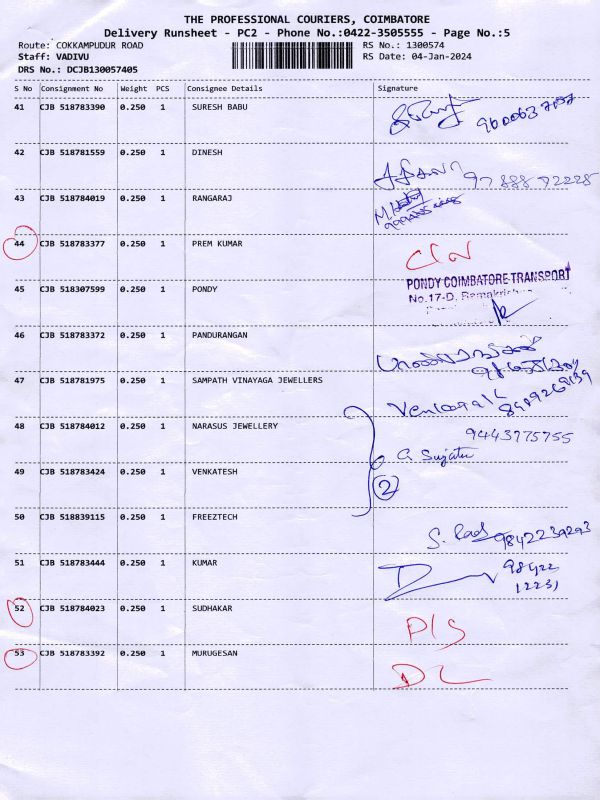 THE PROFESSIONAL COURIERS, COIMBATORE
Delivery Runsheet - PC2 - Phone No.:0422-3505555 - Page No.:5
Route: COKKAMPUDUR ROAD RS No.: 1300574
Staff: VADIVU RS Date: 04-Jan-2024
DRS No.: DCJB130057405
S No Consignment No Weight PCS Consignee Details Signature
41 CJB 518783390 0.250 1 SURESH BABU
42 CJB 518781559 0.250 1 DINESH
43 CJB 518784019 0.250 1 RANGARAJ
44 CJB 518783377 0.250 1 PREM KUMAR
PONDY COIMBATORE TRANSPORT
45 CJB 518307599 0.250 1 PONDY No.17-D, Ramakrishna
46 CJB 518783372 0.250 1 PANDURANGAN
47 CJB 518781975 0.250 1 SAMPATH VINAYAGA JEWELLERS
48 CJB 518784012 0.250 1 NARASUS JEWELLERY 9443775755
G. Sujatu
49 CJB 518783424 0.250 1 VENKATESH 2
50 CJB 518839115 0.250 1 FREEZTECH S. 9842239293
51 CJB 518783444 0.250 1 KUMAR 98422
12231
52 CJB 518784023 0.250 1 SUDHAKAR D/S
53 CJB 518783392 0.250 1 MURUGESAN DL